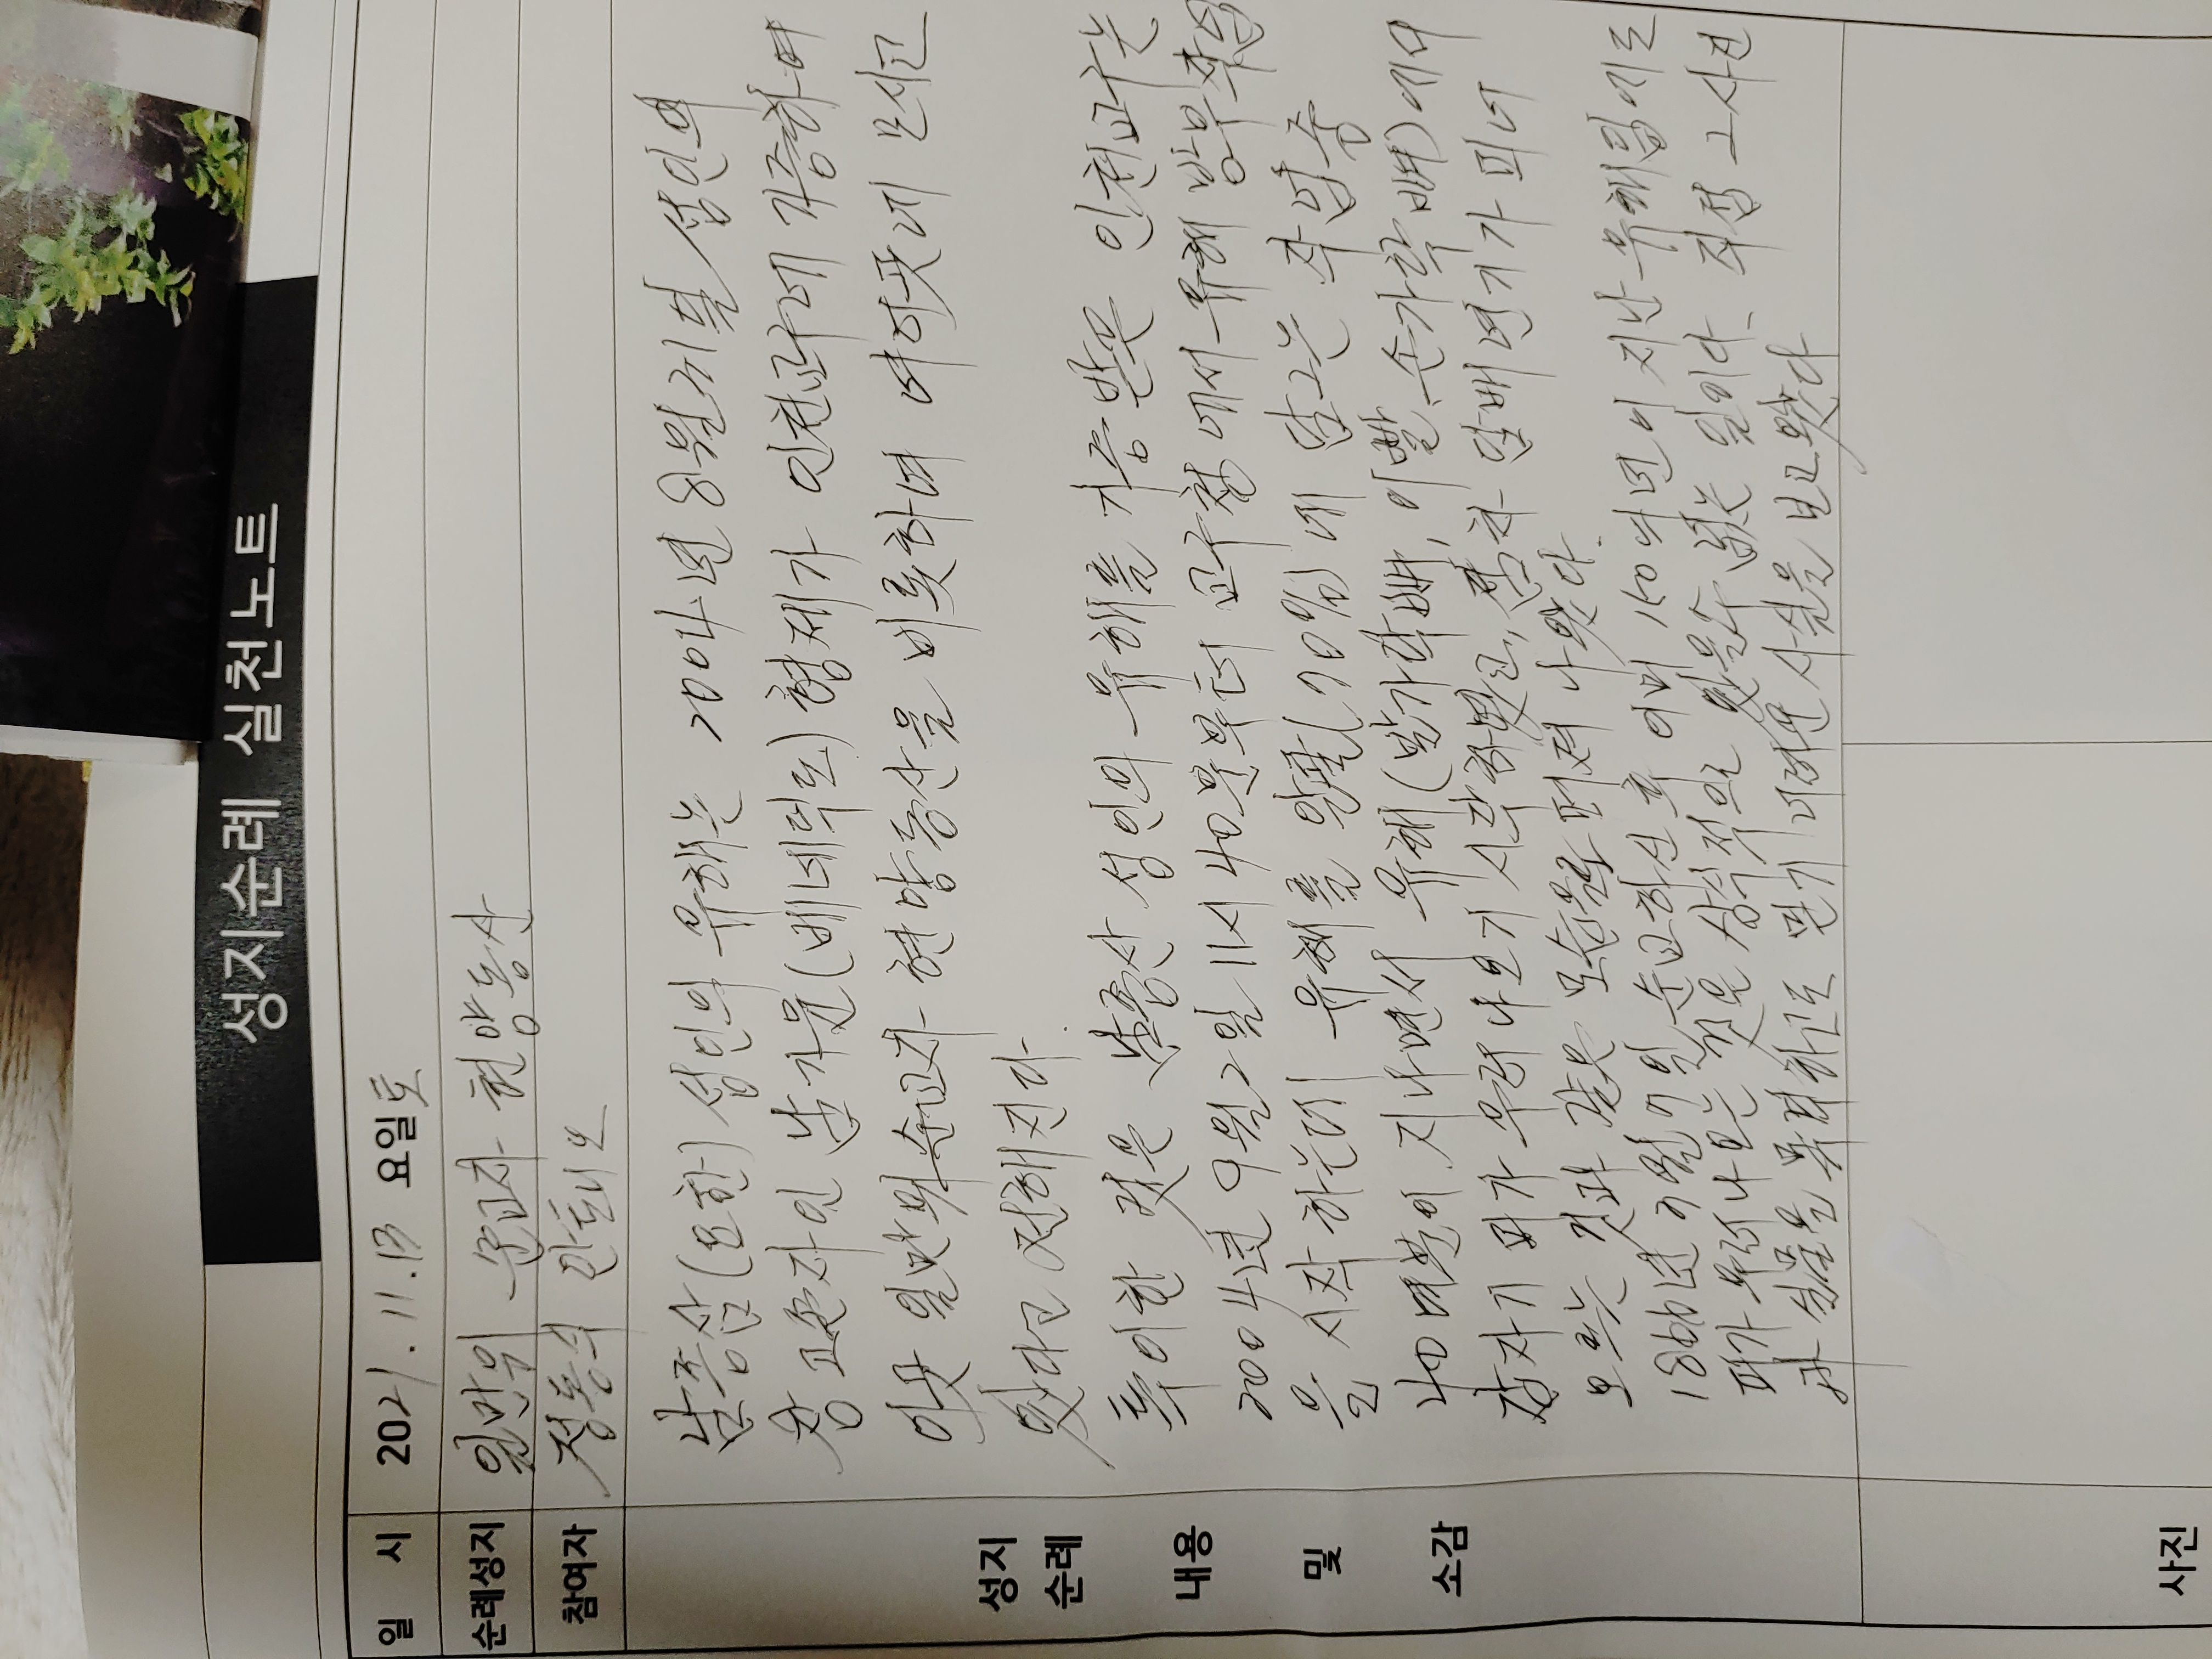 성지순례 실천노트
일 시 2021. 11. 13 요일 토
순례성지 일만위 순교자 현양동산
참여자 정동식 안토니오
남종삼(요한) 성인의 유해는 2004년 8월 성인의
고손자인 남기윤(베네딕도) 형제가 인천교구에 기증하여
이곳 일만위 순교자 현양동산을 비롯하여 여러곳에 모시고
있다고 전해진다.
특이한 것은 남종삼 성인의 유해를 기증받은 인천교구는
2004년 9월 2일 11시 40분부터 교구청에서 유해 방부작업
을 시작하는데 유해를 알콜(70%)에 담그는 작업중
40여분이 지나면서 유해(발가락뼈, 이빨, 손가락뼈)에서
갑자기 피가 우러나오기 시작하였고, 점차 담배연기가 피어
오르는 것과 같은 모습으로 퍼져 나왔다.
1866년 3월 7일 순교하신 후 이미 150여년이 지난 유해임에도
피가 우러나오는 것은 상식적으로 있을수 없는 일이다. 직접 그 사진
과 실물을 목격하고도 믿기 어려운 사실을 보고왔다
성지
순례
내용
및
소감
사진